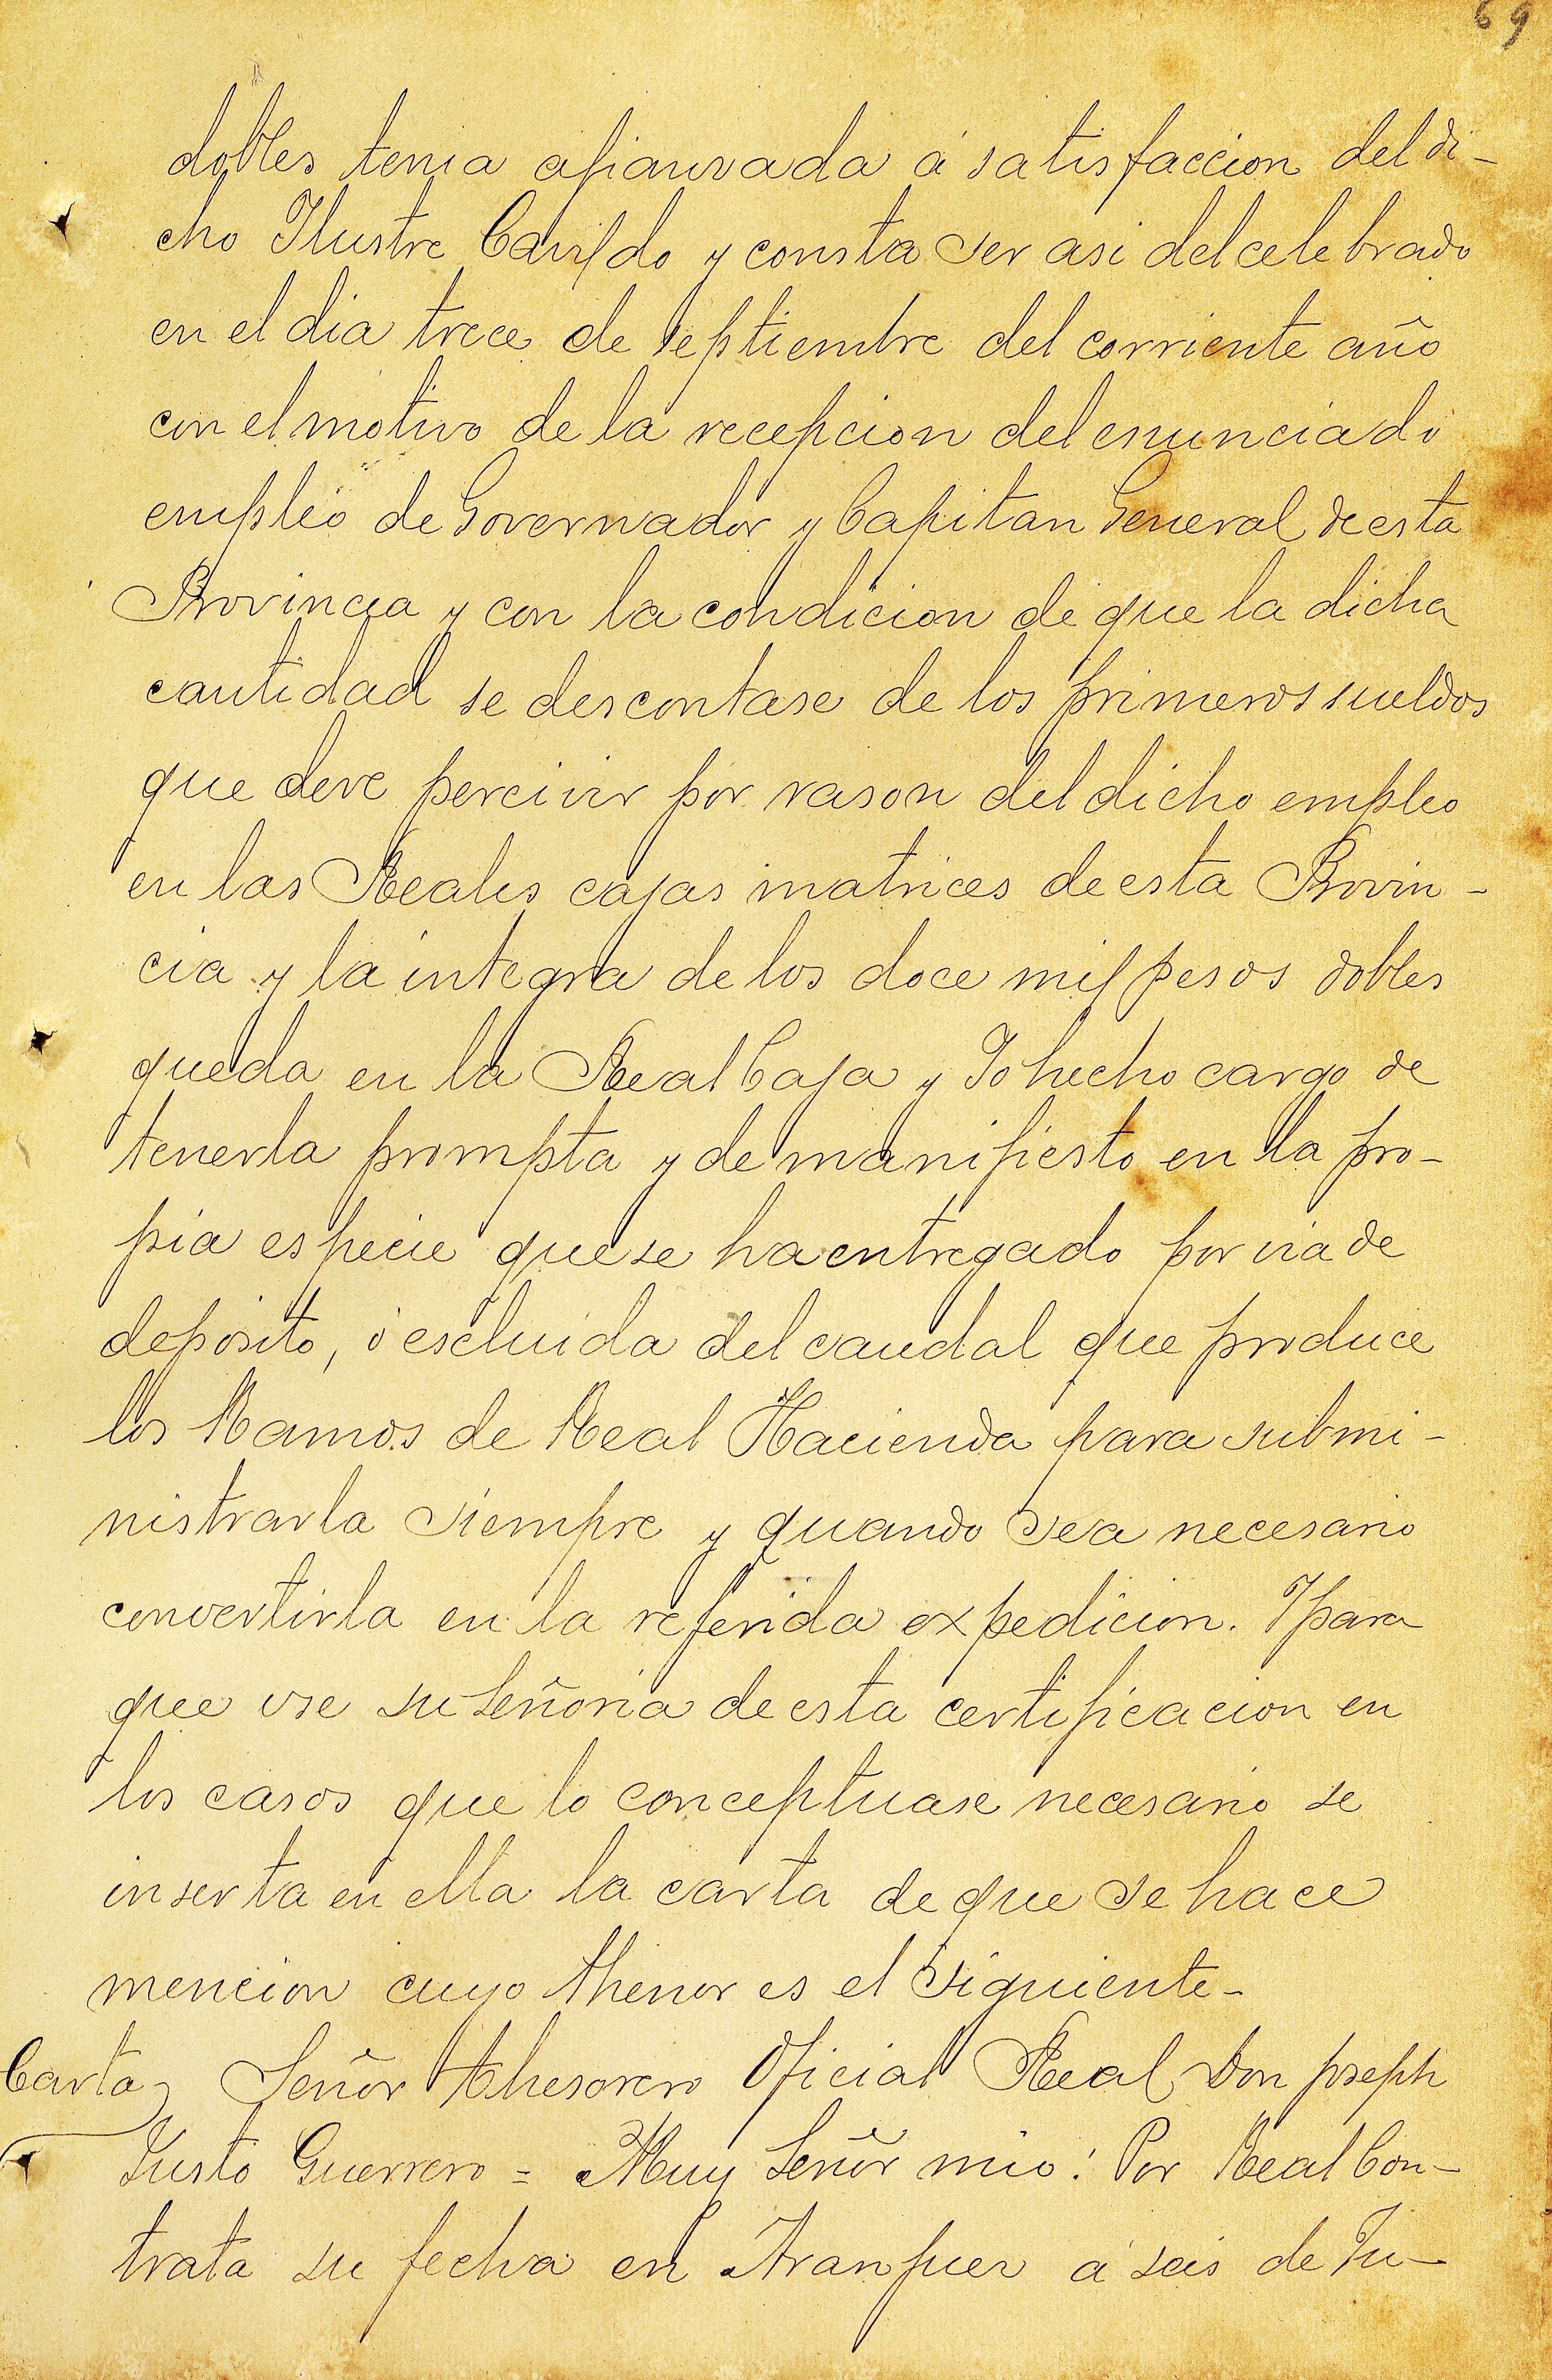 69
dobles tenia afianzada á satisfaccion del di-
cho Ilustre Cavildo y consta ser asi del celebrado
en el dia trece de septiembre del corriente año
con el motivo de la recepcion del enunciado
empleo de Governador y Capitan General de esta
Provincia y con la condicion de que la dicha
cantidad se descontase de los primeros sueldos
que deve percivir por rason del dicho empleo
en las Reales cajas matrices de esta Provin-
cia y la integra de los doce mil pesos dobles
queda en la Real Caja y Yo hecho cargo de
tenerla prompta y de manifiesto en la pro-
pia especie que se ha entregado por via de
deposito, ó escluida del caudal que produce
los Ramos de Real Hacienda para submi-
nistrarla siempre y quando sea necesario
convertirla en la referida expedicion. Y para
que use su Señoria de esta certificacion en
los casos que lo conceptuase necesario se
inserta en ella la carta de que se hace
mencion cuyo thenor es el siguiente-
Carta Señor Thesorero Oficial Real Don Joseph
Justo Guerrero = Muy Señor mio: Por Real Con-
trata su fecha en Aranjuez á seis de Ju-